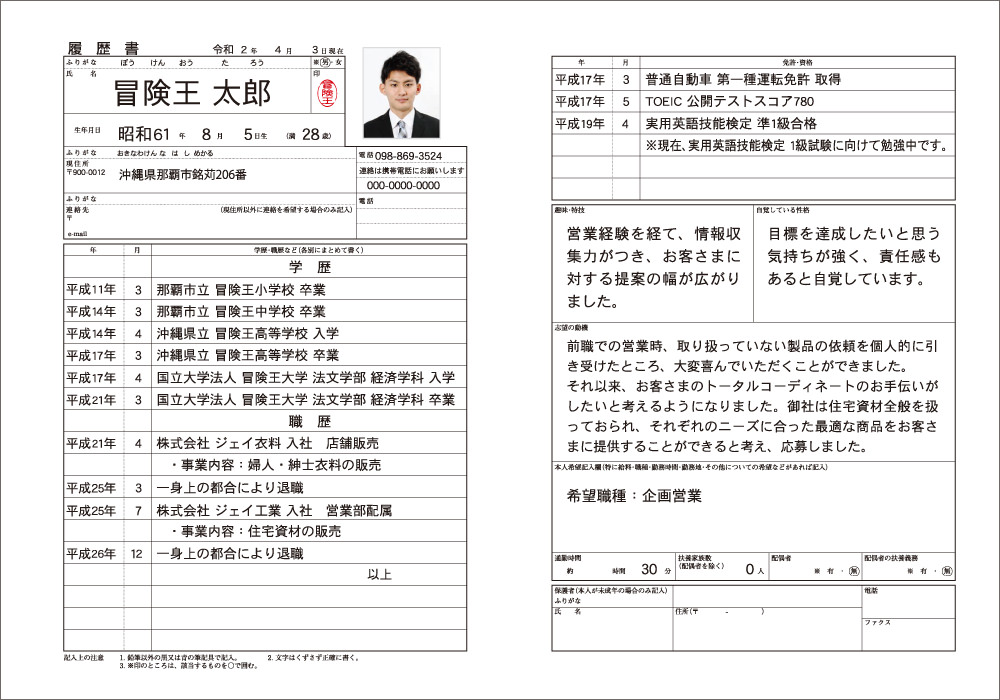 履歴書
令和 2 年 4 月 3 日現在
ふりがな ぼう けん おう た ろう
※ 男・女
氏 名
冒険王 太郎
印
冒険王
生年月日 昭和61 年 8 月 5 日生 (満 28 歳)
ふりがな おきなわけん な は し めかる
現住所
〒900-0012
沖縄県那覇市銘苅206番
電話 098-869-3524
連絡は携帯電話にお願いします
000-0000-0000
ふりがな
連絡先
〒
(現住所以外に連絡を希望する場合のみ記入)
電話
e-mail
年 月 学歴・職歴など(各別にまとめて書く)
学 歴
平成11年 3 那覇市立 冒険王小学校 卒業
平成14年 3 那覇市立 冒険王中学校 卒業
平成14年 4 沖縄県立 冒険王高等学校 入学
平成17年 3 沖縄県立 冒険王高等学校 卒業
平成17年 4 国立大学法人 冒険王大学 法文学部 経済学科 入学
平成21年 3 国立大学法人 冒険王大学 法文学部 経済学科 卒業
職 歴
平成21年 4 株式会社 ジェイ衣料 入社 店舗販売
・事業内容：婦人・紳士衣料の販売
平成25年 3 一身上の都合により退職
平成25年 7 株式会社 ジェイ工業 入社 営業部配属
・事業内容：住宅資材の販売
平成26年 12 一身上の都合により退職
以上
記入上の注意 1. 鉛筆以外の黒又は青の筆記具で記入。 2. 文字はくずさず正確に書く。
3. ※印のところは、該当するものを○で囲む。
年 月 免許・資格
平成17年 3 普通自動車 第一種運転免許 取得
平成17年 5 TOEIC 公開テストスコア780
平成19年 4 実用英語技能検定 準1級合格
※現在、実用英語技能検定 1級試験に向けて勉強中です。
趣味・特技
営業経験を経て、情報収
集力がつき、お客さまに
対する提案の幅が広がり
ました。
自覚している性格
目標を達成したいと思う
気持ちが強く、責任感も
あると自覚しています。
志望の動機
前職での営業時、取り扱っていない製品の依頼を個人的に引
き受けたところ、大変喜んでいただくことができました。
それ以来、お客さまのトータルコーディネートのお手伝いが
したいと考えるようになりました。御社は住宅資材全般を扱
っておられ、それぞれのニーズに合った最適な商品をお客さ
まに提供することができると考え、応募しました。
本人希望記入欄(特に給料・職種・勤務時間・勤務地・その他についての希望などがあれば記入)
希望職種：企画営業
通勤時間
約 時間 30 分
扶養家族数
(配偶者を除く) 0 人
配偶者
※ 有 ・ 無
配偶者の扶養義務
※ 有 ・ 無
保護者(本人が未成年の場合のみ記入)
ふりがな
氏 名
住所(〒 - )
電話
ファクス